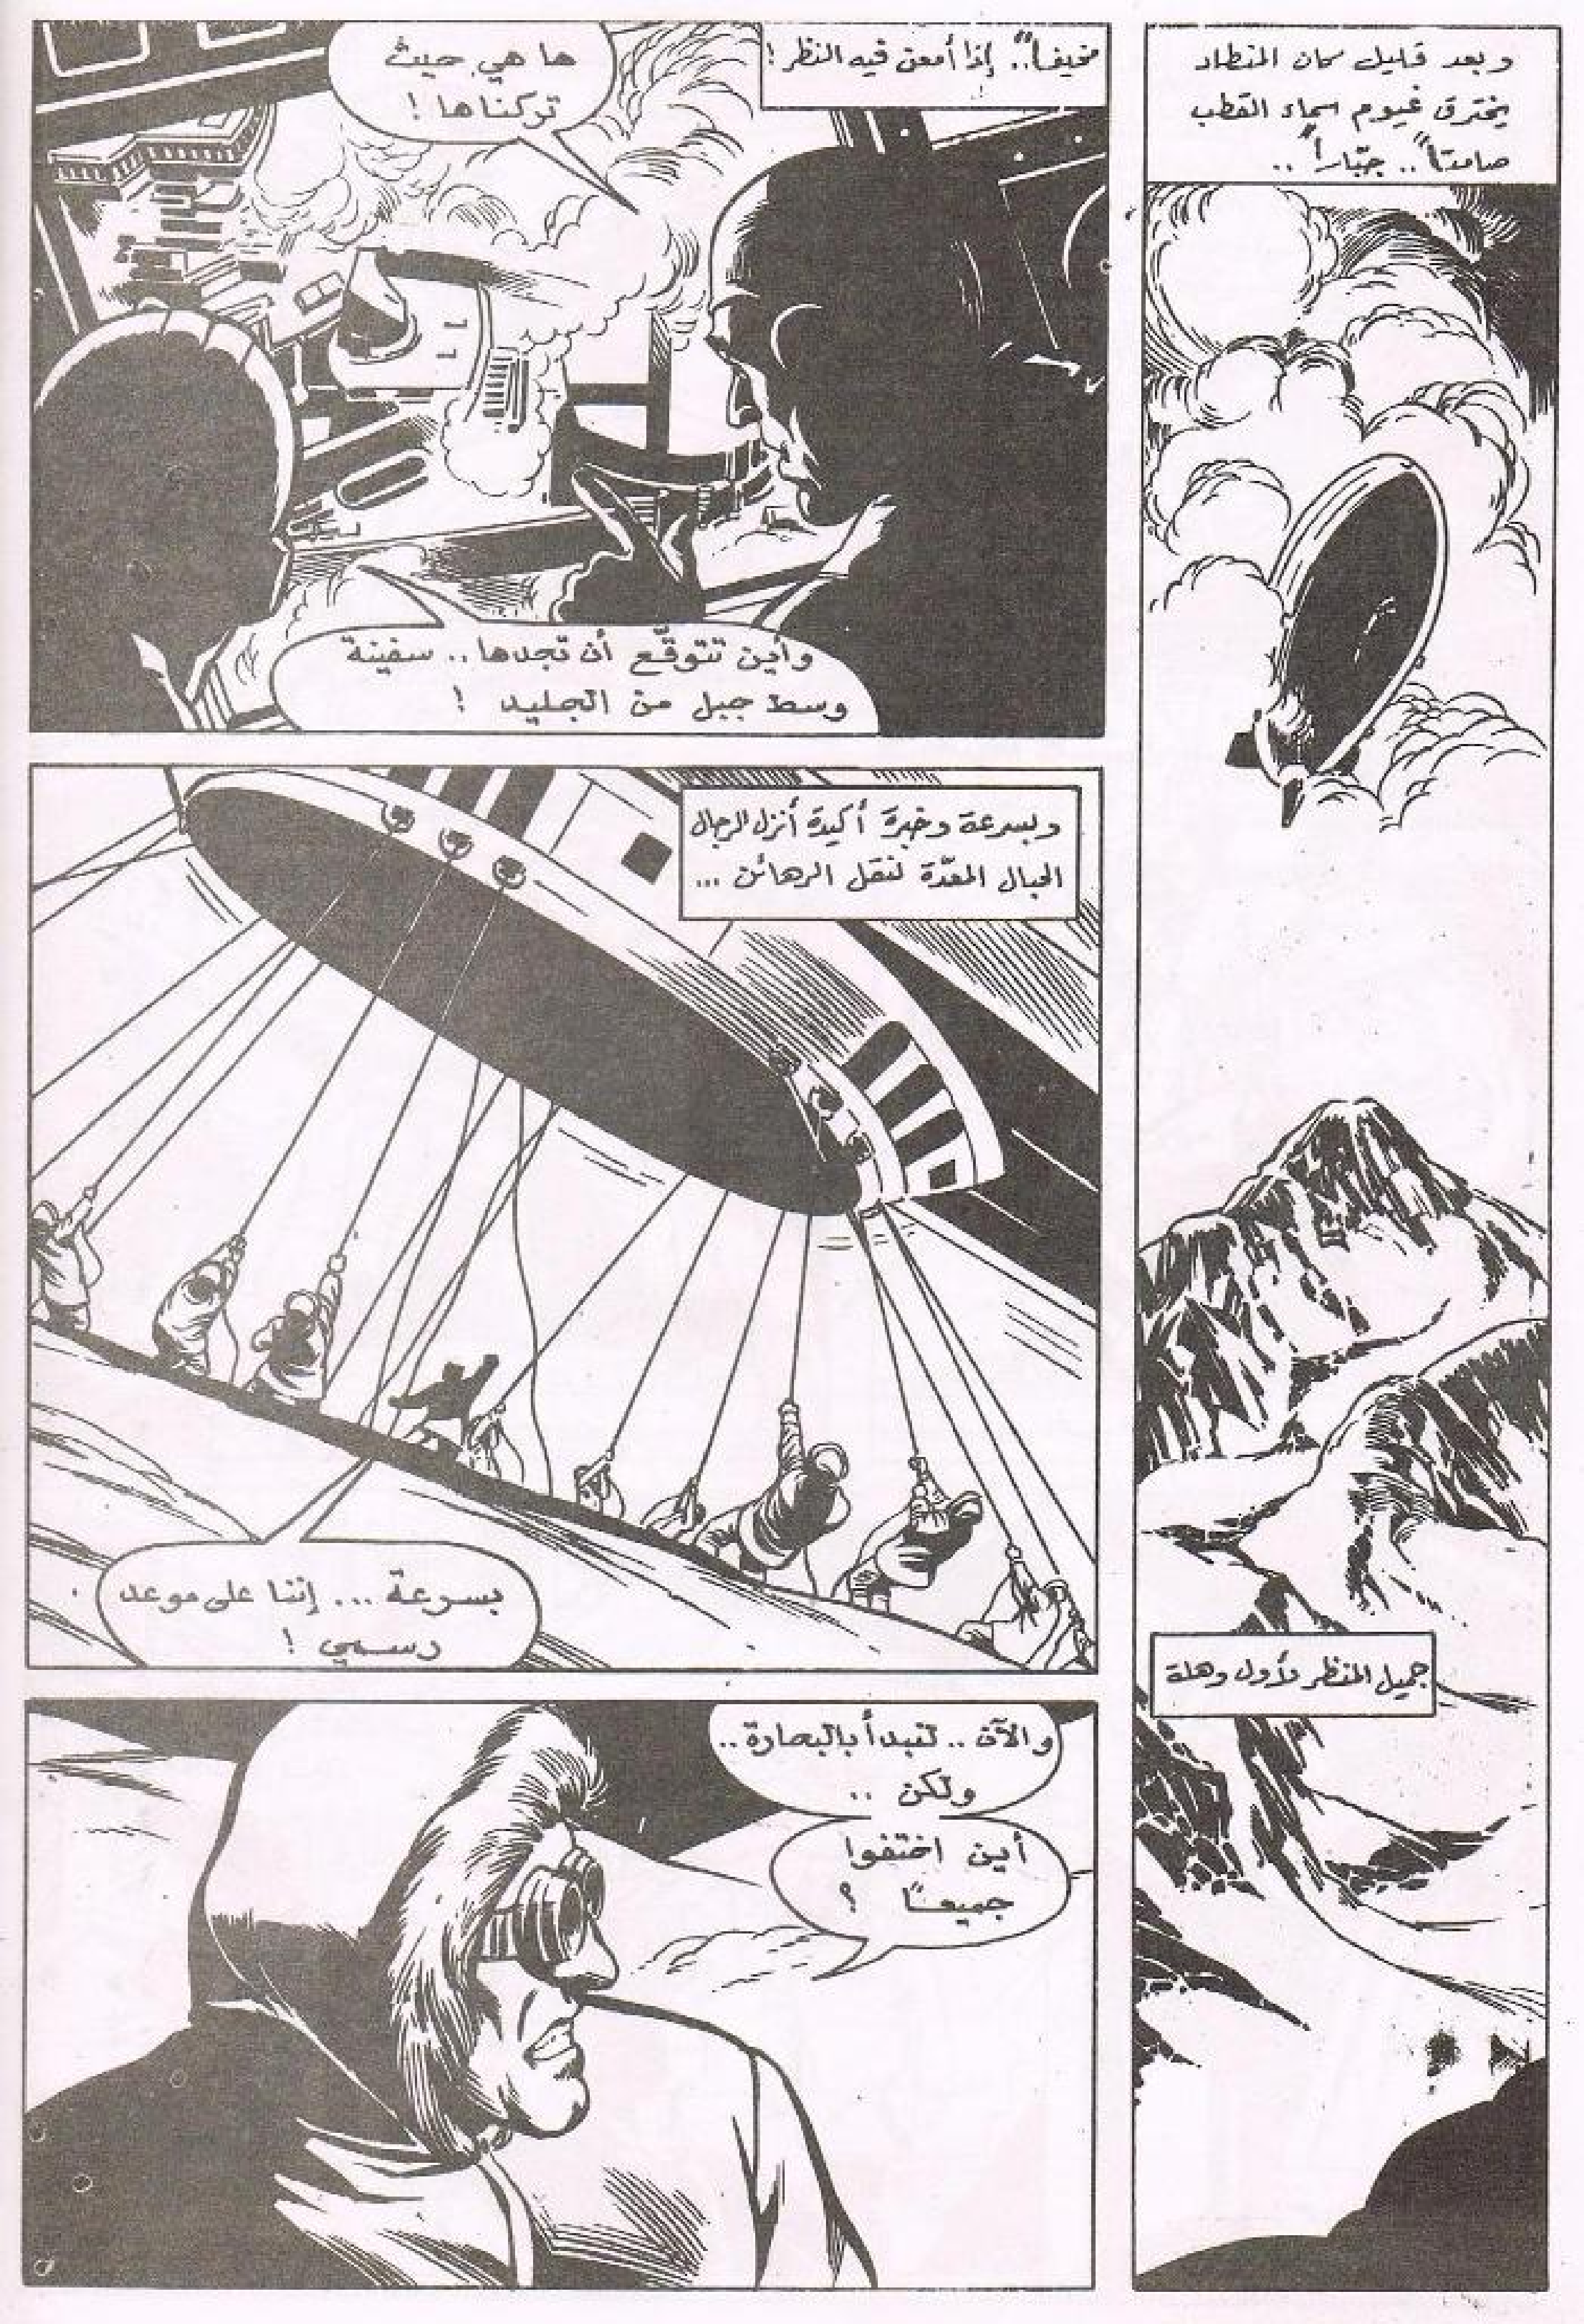 وبعد قليل كان المنطاد
يخترق غيوم سماء القطب
صامتاً.. جبّاراً..
جميل المنظر لأول وهلة
مخيفاً.. إذا أمعن فيه النظر!
ها هي حيث
تركناها!
وأين تتوقّع أن تجدها.. سفينة
وسط جبل من الجليد!
وبسرعة وخبرة أكيدة أنزل الرجال
الحبال المعدّة لنقل الرهائن ...
بسرعة ... إننا على موعد
رسمي!
والآن .. لنبدأ بالبحارة ..
ولكن ..
أين اختفوا
جميعاً؟